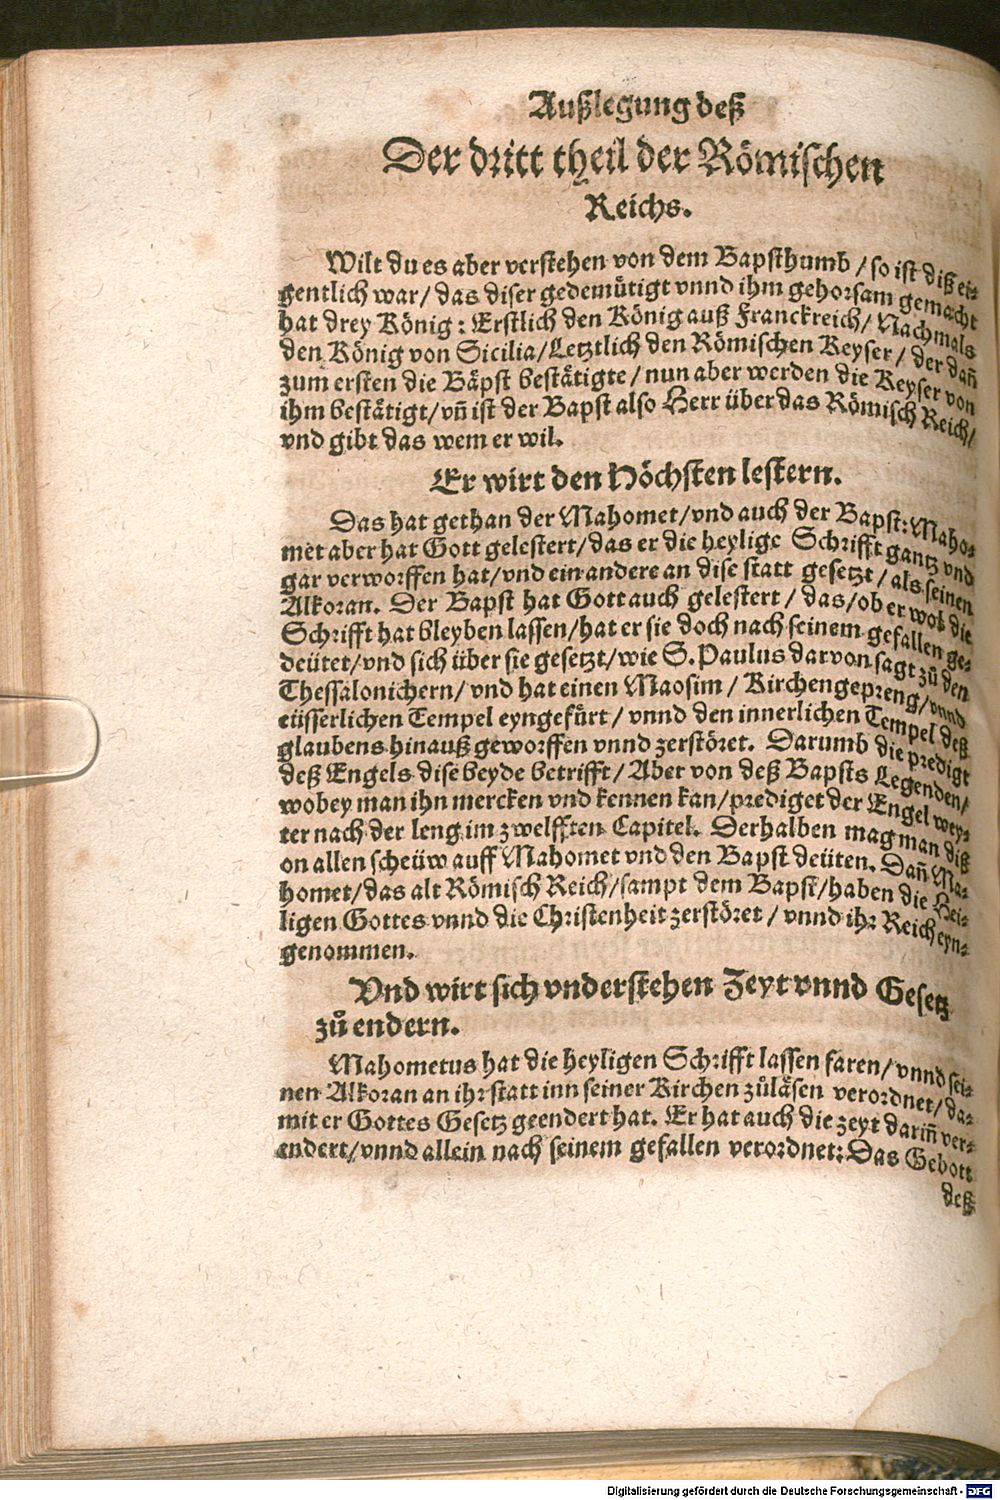 Außlegung deß
Der dritt theil der Römischen
Reichs.
Wilt du es aber verstehen von dem Bapsthumb / so ist diß ei-
gentlich war / das diser gedemütigt vnnd ihm gehorsam gemacht
hat drey König: Erstlich den König auß Franckreich / Nachmals
den König von Sicilia / Letztlich den Römischen Keyser / der dañ
zum ersten die Bäpst bestätigte / nun aber werden die Keyser von
ihm bestätigt / vñ ist der Bapst also Herr über das Römisch Reich /
vnd gibt das wem er wil.
Er wirt den Höchsten lestern.
Das hat gethan der Mahomet / vnd auch der Bapst: Maho-
met aber hat Gott gelestert / das er die heylige Schrifft gantz vnd
gar verworffen hat / vnd ein andere an dise statt gesetzt / als seinen
Alkoran. Der Bapst hat Gott auch gelestert / das / ob er wol die
Schrifft hat bleyben lassen / hat er sie doch nach seinem gefallen ge-
deütet / vnd sich über sie gesetzt / wie S. Paulus darvon sagt zů den
Thessalonichern / vnd hat einen Maosim / Kirchengepreng / vnnd
eüsserlichen Tempel eyngefürt / vnnd den innerlichen Tempel deß
glaubens hinauß geworffen vnnd zerstöret. Darumb die predigt
deß Engels dise beyde betrifft / Aber von deß Bapsts Legenden /
wobey man ihn mercken vnd kennen kan / prediget der Engel wey-
ter nach der leng im zwelfften Capitel. Derhalben mag man diß
on allen scheüw auff Mahomet vnd den Bapst deüten. Dañ Ma-
homet / das alt Römisch Reich / sampt dem Bapst / haben die Hei-
ligen Gottes vnnd die Christenheit zerstöret / vnnd ihr Reich eyn-
genommen.
Vnd wirt sich vnderstehen Zeyt vnnd Gesetz
zů endern.
Mahometus hat die heyligen Schrifft lassen faren / vnnd sei-
nen Alkoran an ihr statt inn seiner Kirchen zůläsen verordnet / da-
mit er Gottes Gesetz geendert hat. Er hat auch die zeyt dariñ ver-
endert / vnnd allein nach seinem gefallen verordnet: Das Gebott
deß
Digitalisierung gefördert durch die Deutsche Forschungsgemeinschaft - DFG